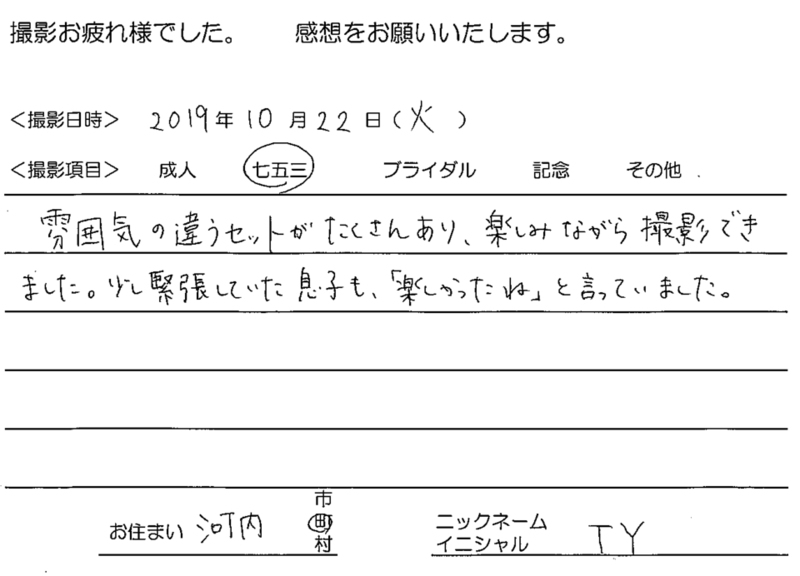 撮影お疲れ様でした。　感想をお願いいたします。
<撮影日時>　2019年10月22日(火)
<撮影項目>　成人　七五三　ブライダル　記念　その他
雰囲気の違うセットがたくさんあり、楽しみながら撮影でき
ました。少し緊張していた息子も、「楽しかったね」と言っていました。
お住まい　河内　市　町　村
ニックネーム
イニシャル　TY